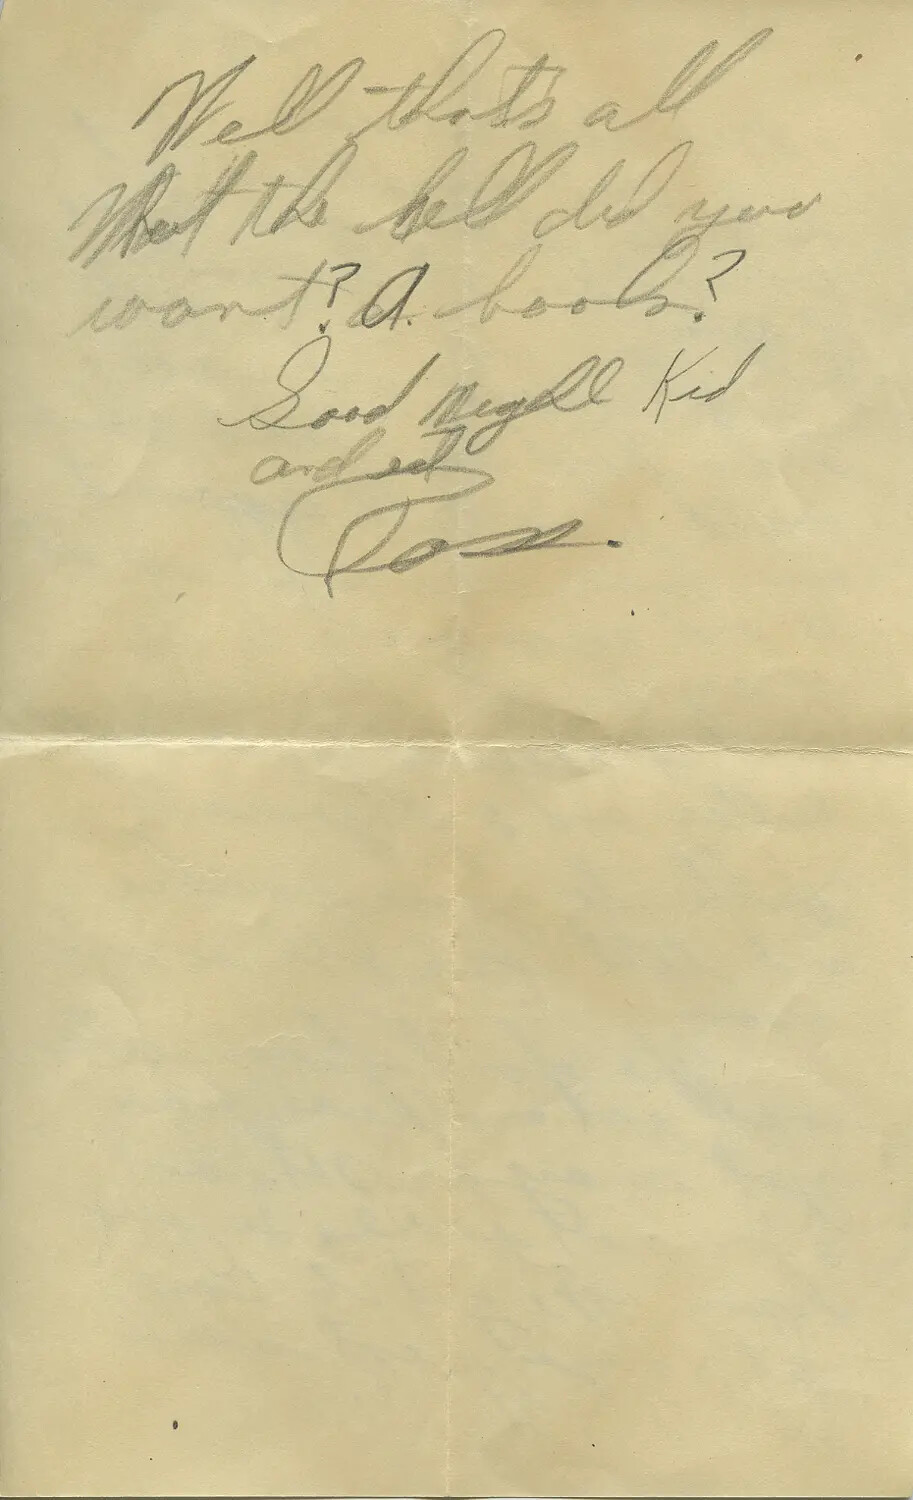 Well that's all
What the hell did you
want? A. book?
Good Kid
and
Ross.